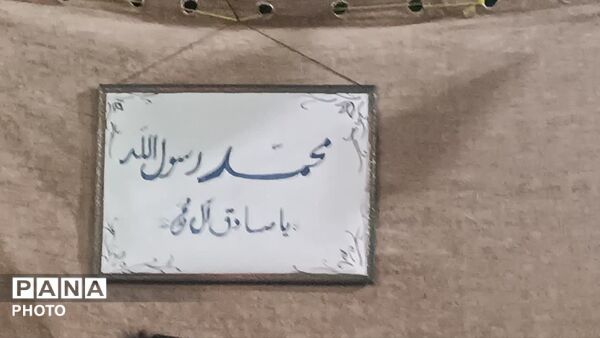 محمد رسول الله
یا صادق آل محمد
PANA
PHOTO